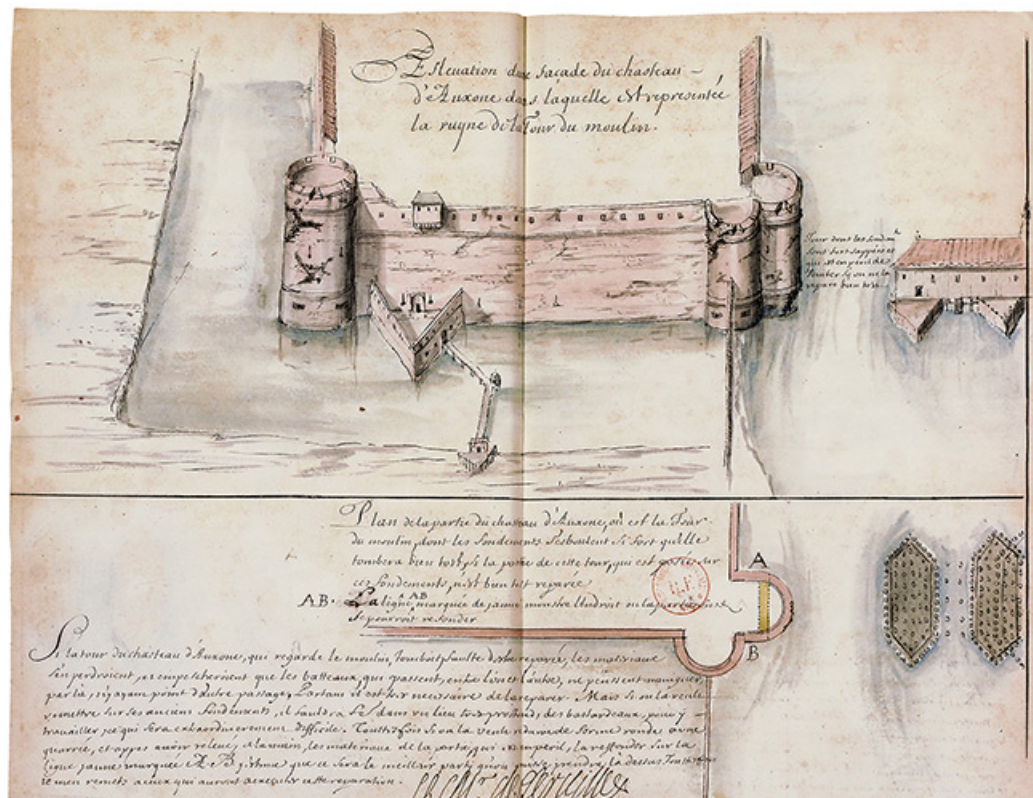 Esleuation d'une façade du chasteau
d'Auxone dans laquelle est representée
la ruyne de la Tour du moulin.
Tour dont les fondem
sont fort sappées et
qui est en peril de
tomber sy on ne la
repare bien tost
Plan de la partie du chasteau d'Auxone, où est la Tour
du moulin, dont les fondements s'esboulent si fort qu'elle
tombera bien tost, si la partie de cette tour, qui est portée sur
ces fondements, n'est bien tost reparée
A.B. La ligne A AB marquée de jaune monstre l'endroit ou la
se pourroit refonder
A
B
Si la tour du chasteau d'Auxone, qui regarde le moulin, tomboit faulte d'estre reparée, les materiaux
s'en perdroient, et empescheroient que les batteaux, qui passent, entre l'un et l'autre, ne peussent naviguer
par là, n'y ayant point d'autre passage, Partant il est tres necessaire de la reparer. Mais si on la veult
remettre sur ses anciens fondements, il fauldra fe dans un lieu tres profond, des bastardeaux, pour y
travailler, ce qui sera extraordinairement difficile. Touttefois si on la veult reduire de forme ronde en une
quarrée, et apres avoir relevé, les materiaux de la partie, qui est en peril, la reffonder sur la
ligne jaune marquée A. B. j'estime que ce sera le meilleur party qu'on puisse prendre, là dessus
remets a ceux qui auront a executer cette reparation.